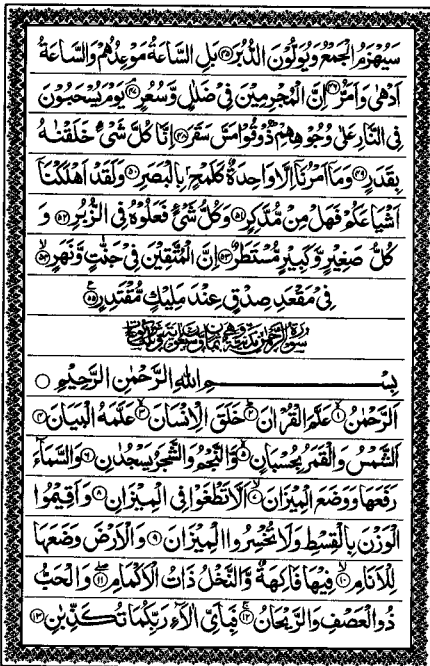 سَيُهْزَمُ الْجَمْعُ وَيُوَلُّوْنَ الدُّبُرَ ۴۵ بَلِ السَّاعَةُ مَوْعِدُهُمْ وَالسَّاعَةُ
اَدْهٰى وَاَمَرُّ ۴۶ اِنَّ الْمُجْرِمِيْنَ فِيْ ضَلٰلٍ وَّسُعُرٍ ۴۷ يَوْمَ يُسْحَبُوْنَ
فِى النَّارِ عَلٰى وُجُوْهِهِمْ ذُوْقُوْا مَسَّ سَقَرَ ۴۸ اِنَّا كُلَّ شَيْءٍ خَلَقْنٰهُ
بِقَدَرٍ ۴۹ وَمَا اَمْرُنَا اِلَّا وَاحِدَةٌ كَلَمْحٍ بِالْبَصَرِ ۵۰ وَلَقَدْ اَهْلَكْنَا
اَشْيَاعَكُمْ فَهَلْ مِنْ مُّدَّكِرٍ ۵۱ وَكُلُّ شَيْءٍ فَعَلُوْهُ فِى الزُّبُرِ ۵۲ وَ
كُلُّ صَغِيْرٍ وَّكَبِيْرٍ مُّسْتَطَرٌ ۵۳ اِنَّ الْمُتَّقِيْنَ فِيْ جَنّٰتٍ وَّنَهَرٍ ۵۴
فِيْ مَقْعَدِ صِدْقٍ عِنْدَ مَلِيْكٍ مُّقْتَدِرٍ ۵۵
بِسْمِ اللهِ الرَّحْمٰنِ الرَّحِيْمِ
اَلرَّحْمٰنُ ۱ عَلَّمَ الْقُرْاٰنَ ۲ خَلَقَ الْاِنْسَانَ ۳ عَلَّمَهُ الْبَيَانَ ۴
اَلشَّمْسُ وَالْقَمَرُ بِحُسْبَانٍ ۵ وَّالنَّجْمُ وَالشَّجَرُ يَسْجُدٰنِ ۶ وَالسَّمَآءَ
رَفَعَهَا وَوَضَعَ الْمِيْزَانَ ۷ اَلَّا تَطْغَوْا فِى الْمِيْزَانِ ۸ وَاَقِيْمُوا
الْوَزْنَ بِالْقِسْطِ وَلَا تُخْسِرُوا الْمِيْزَانَ ۹ وَالْاَرْضَ وَضَعَهَا
لِلْاَنَامِ ۱۰ فِيْهَا فَاكِهَةٌ وَّالنَّخْلُ ذَاتُ الْاَكْمَامِ ۱۱ وَالْحَبُّ
ذُو الْعَصْفِ وَالرَّيْحَانُ ۱۲ فَبِاَيِّ اٰلَآءِ رَبِّكُمَا تُكَذِّبٰنِ ۱۳